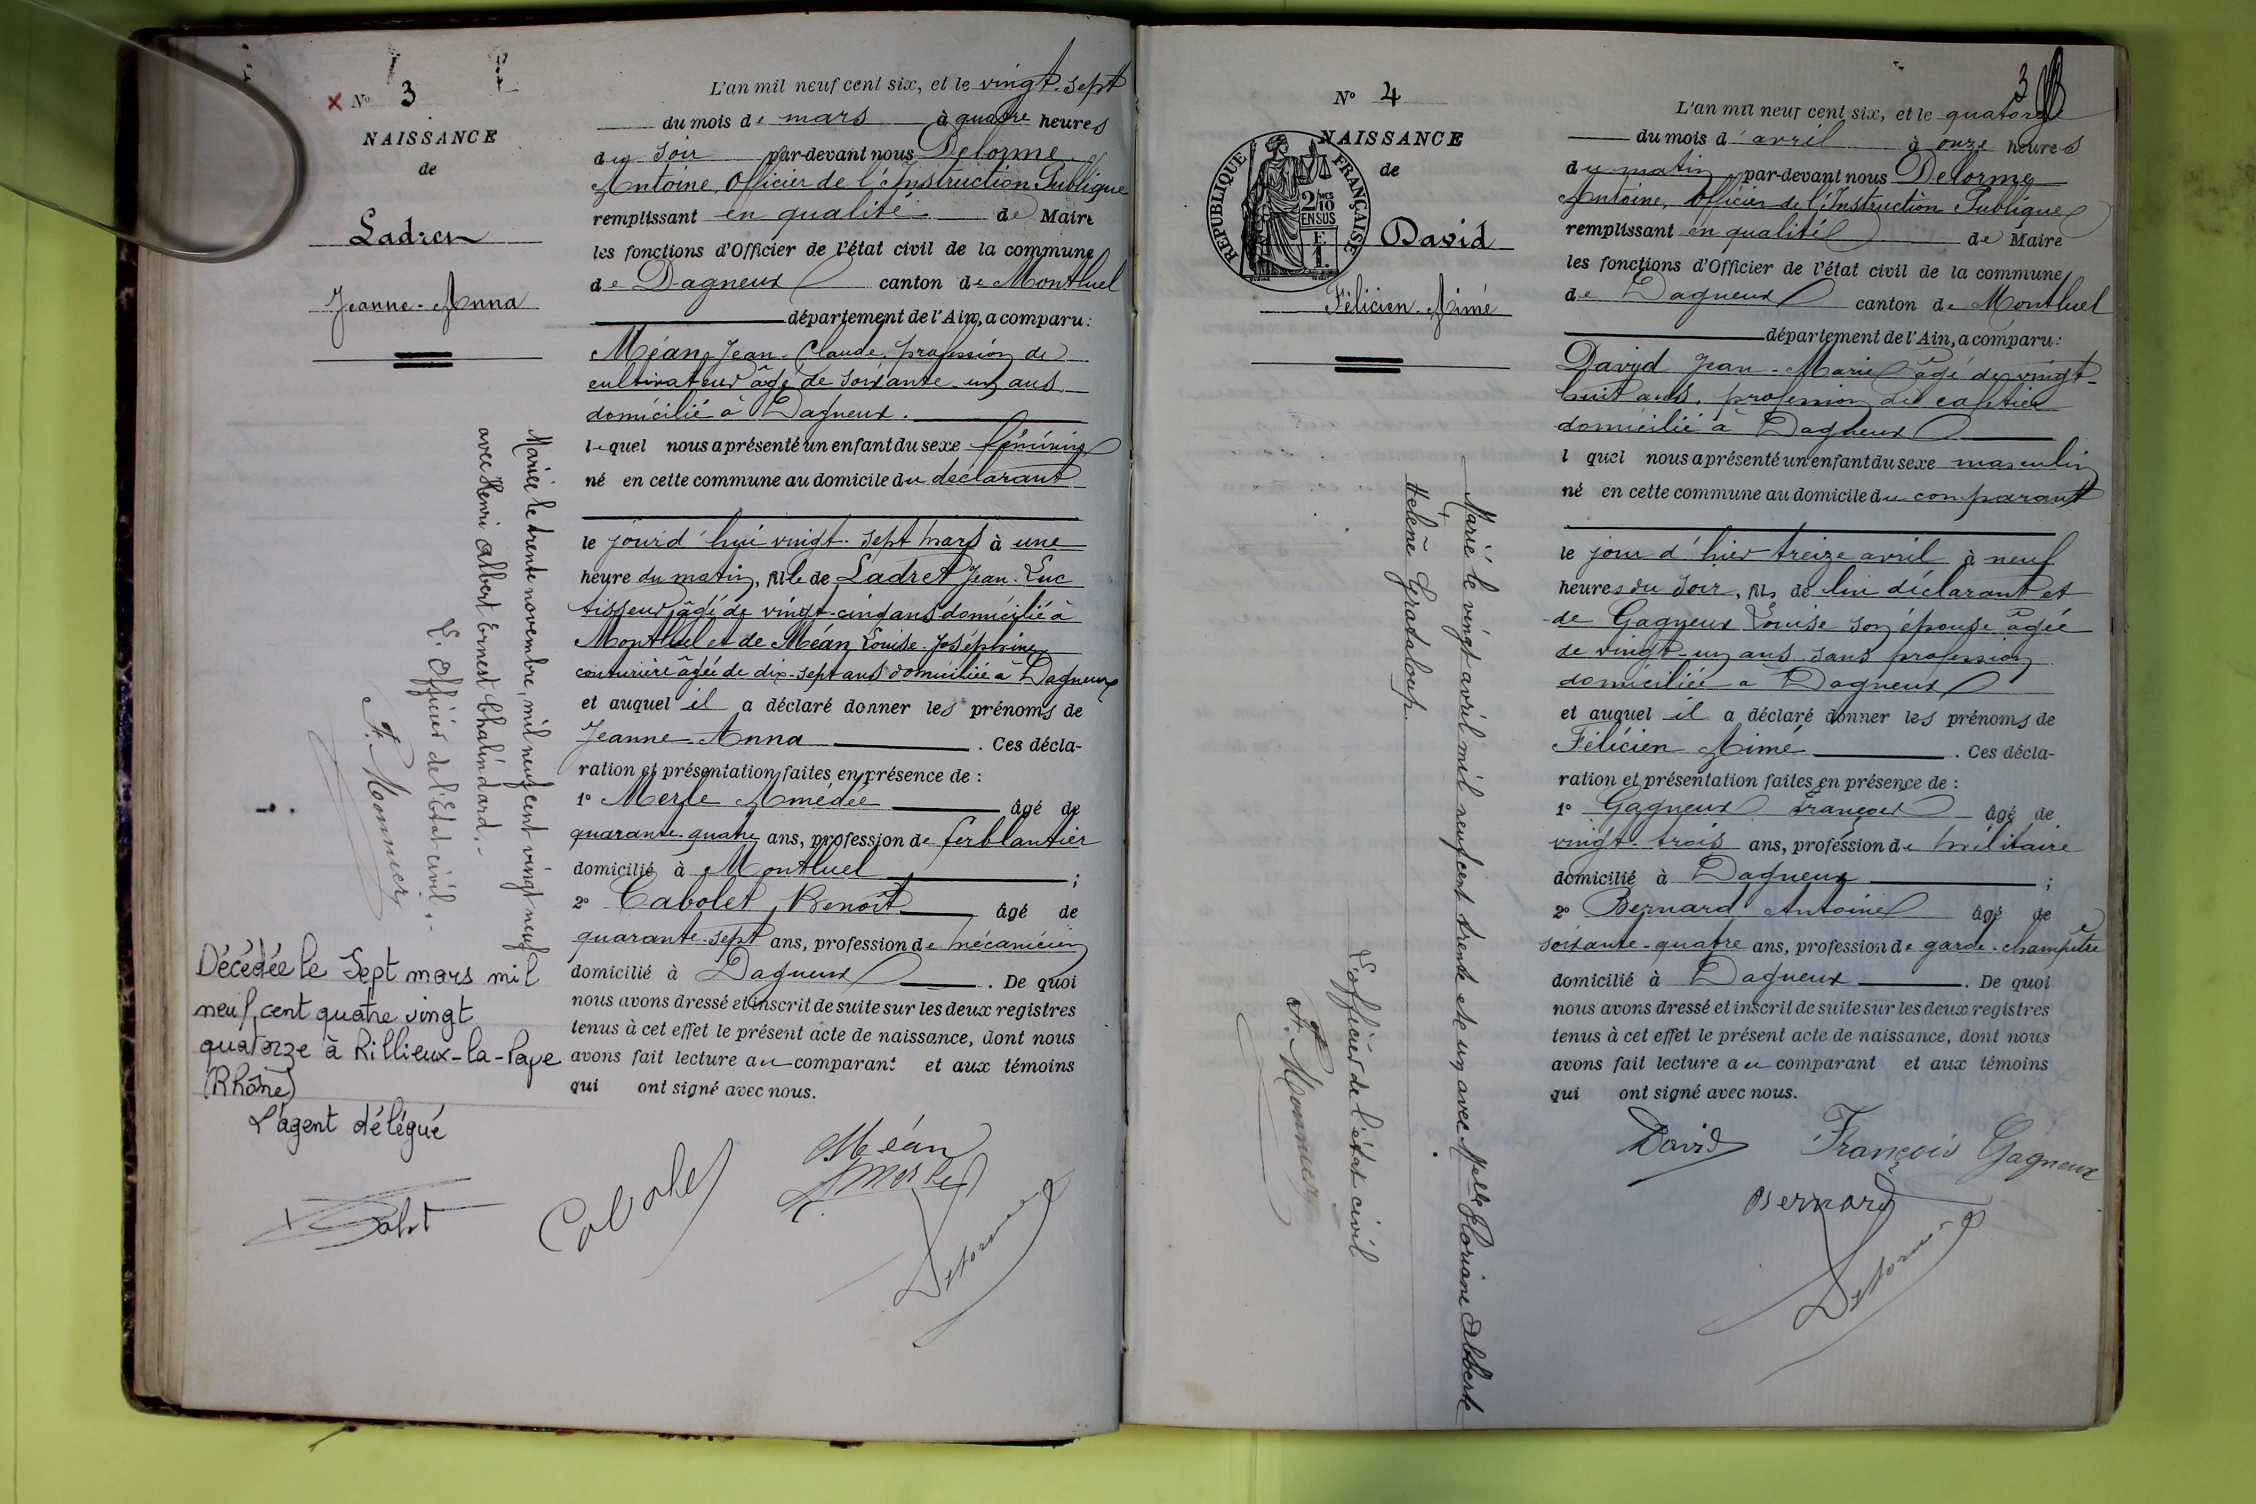 N° 3
NAISSANCE
de
Ladret
Jeanne-Anna
Mariée le trente novembre, mil neuf cent vingt neuf
avec Henri Albert Ernest Chalindard.-
L'Officier de l'Etat civil.-
F. Monnery
Décédée le Sept mars mil
neuf cent quatre vingt
quatorze à Rillieux-la-Pape
(Rhône)
L'agent délégué
L'an mil neuf cent six, et le vingt-sept
du mois de mars à quatre heures
du soir par-devant nous Delorme
Antoine, Officier de l'Instruction Publique
remplissant en qualité de Maire
les fonctions d'Officier de l'état civil de la commune
de Dagneux canton de Montluel
département de l'Ain, a comparu:
Méan Jean-Claude, profession de
cultivateur âgé de soixante un ans
domicilié à Dagneux.
lequel nous a présenté un enfant du sexe féminin
né en cette commune au domicile du déclarant
le jourd'hui vingt-sept mars à une
heure du matin, fille de Ladret Jean-Luc
tisseur âgé de vingt-cinq ans domicilié à
Montluel et de Méan Louise-Joséphine
couturière âgée de dix-sept ans domiciliée à Dagneux
et auquel il a déclaré donner les prénoms de
Jeanne-Anna . Ces décla-
ration et présentation faites en présence de :
1° Merle Amédée âgé de
quarante-quatre ans, profession de ferblantier
domicilié à Montluel ;
2° Cabolet Benoît âgé de
quarante-sept ans, profession de mécanicien
domicilié à Dagneux . De quoi
nous avons dressé et inscrit de suite sur les deux registres
tenus à cet effet le présent acte de naissance, dont nous
avons fait lecture au comparant et aux témoins
qui ont signé avec nous.
Méan
Cabolet
A. Merle
Delorme
3
N° 4
NAISSANCE
de
REPUBLIQUE FRANÇAISE
2/10 MES
EN SUS
David
Félicien-Aimé
Marié le vingt avril mil neuf cent trente et un avec Melle Floriane Alberte
Hélène Grataloup.
L'officier de l'état civil
F. Monnery
L'an mil neuf cent six, et le quatorze
du mois d'avril à onze heures
du matin par-devant nous Delorme
Antoine, Officier de l'Instruction Publique
remplissant en qualité de Maire
les fonctions d'Officier de l'état civil de la commune
de Dagneux canton de Montluel
département de l'Ain, a comparu:
David Jean-Marie âgé de vingt-
huit ans, profession de cafetier
domicilié à Dagneux
l quel nous a présenté un enfant du sexe masculin
né en cette commune au domicile du comparant
le jour d'hier treize avril à neuf
heures du soir, fils de lui déclarant et
de Gagneux Louise son épouse âgée
de vingt-un ans sans profession
domiciliée à Dagneux
et auquel il a déclaré donner les prénoms de
Félicien Aimé . Ces décla-
ration et présentation faites en présence de :
1° Gagneux François âgé de
vingt-trois ans, profession de militaire
domicilié à Dagneux ;
2° Bernard Antoine âgé de
soixante-quatre ans, profession de garde-champêtre
domicilié à Dagneux . De quoi
nous avons dressé et inscrit de suite sur les deux registres
tenus à cet effet le présent acte de naissance, dont nous
avons fait lecture au comparant et aux témoins
qui ont signé avec nous.
David François Gagneux
Bernard
Delorme